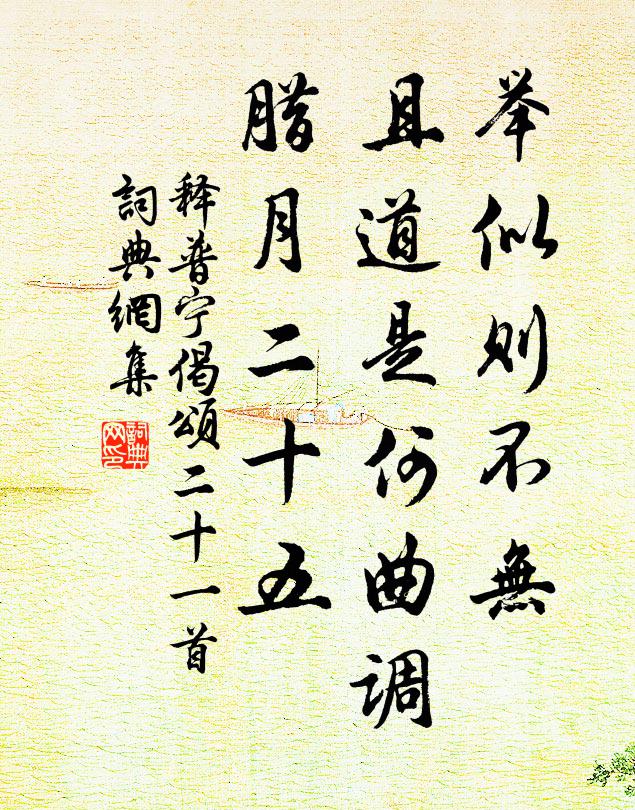 举似则不無
且道是何曲调
腊月二十五
释普宁偈頌二十一首
詞典網集
詞典网印